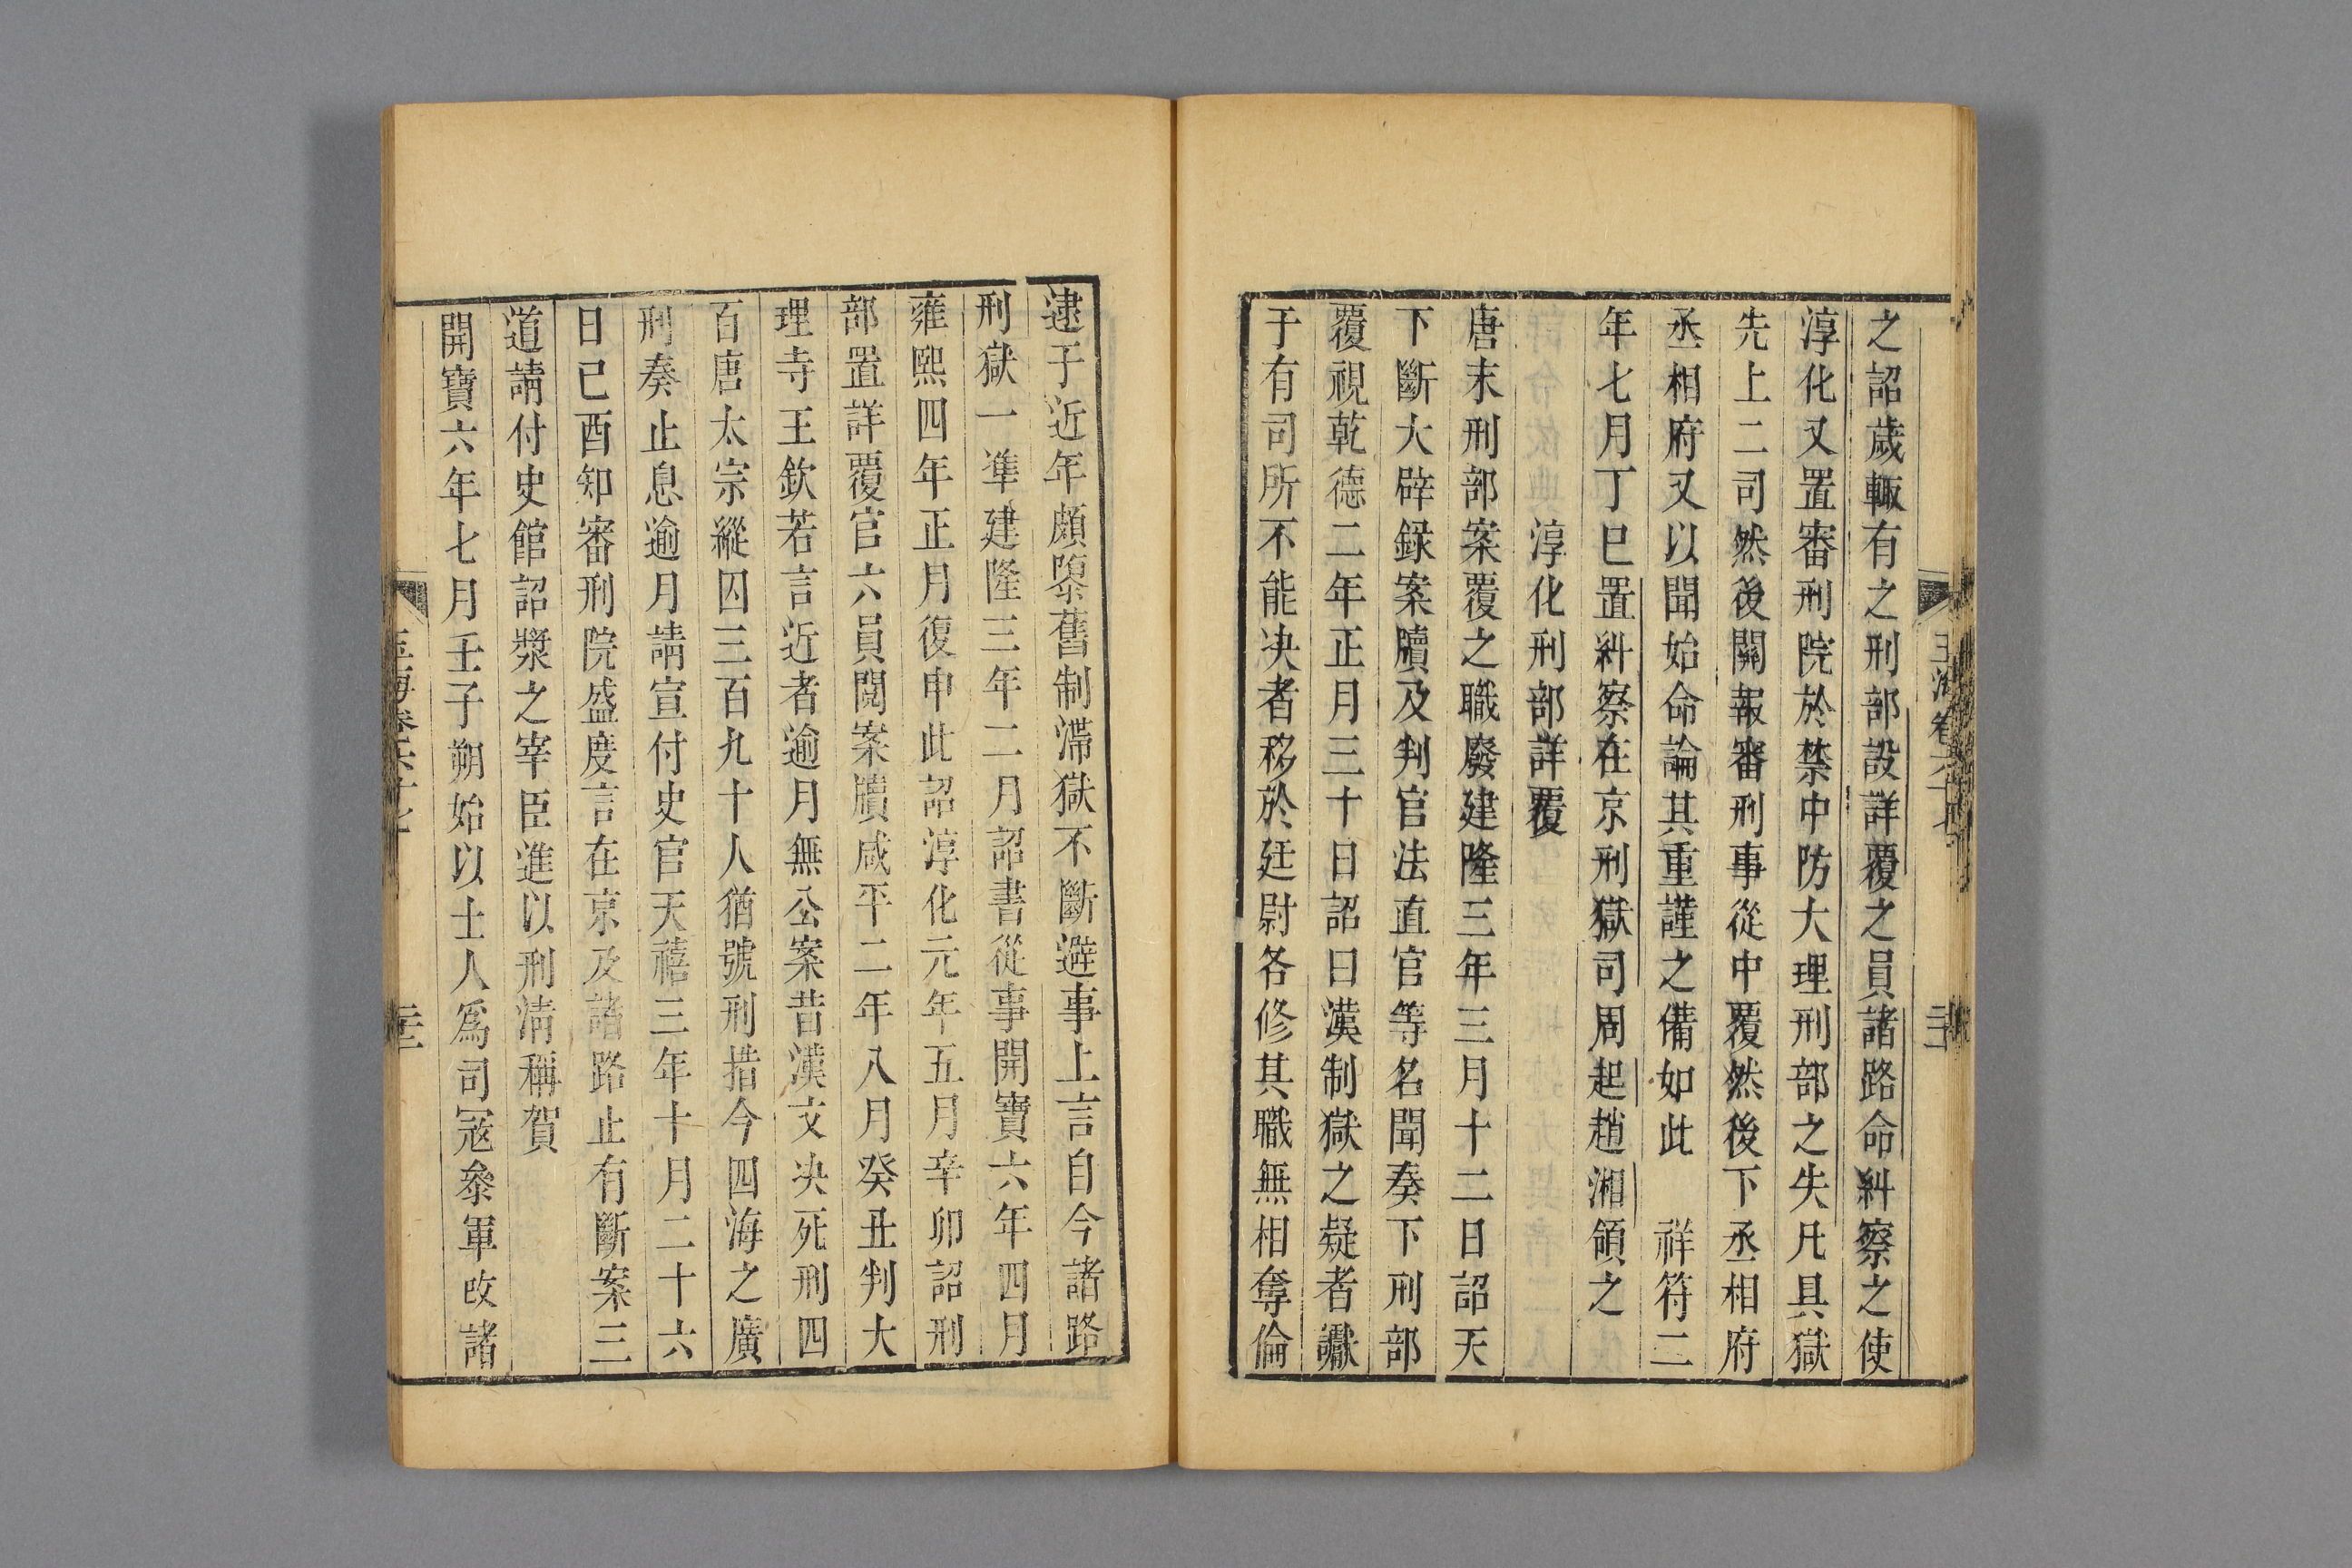 之詔歲輙有之刑部設詳覆之員諸路命糾察之使
淳化又置審刑院於禁中防大理刑部之失凡具獄
先上二司然後關報審刑事從中覆然後下丞相府
丞相府又以聞始命論其重謹之備如此 祥符二
年七月丁巳置糾察在京刑獄司周起趙湘領之
淳化刑部詳覆
唐末刑部案覆之職廢建隆三年三月十二日詔天
下斷大辟録案牘及判官法直官等名聞奏下刑部
覆視乾德二年正月三十日詔曰漢制獄之疑者讞
于有司所不能决者移於廷尉各修其職無相奪倫
逮于近年頗隳舊制滯獄不斷避事上言自今諸路
刑獄一準建隆三年二月詔書從事開寶六年四月
雍熙四年正月復申此詔淳化元年五月辛卯詔刑
部置詳覆官六員閱案牘咸平二年八月癸丑判大
理寺王欽若言近者逾月無公案昔漢文决死刑四
百唐太宗縱囚三百九十人猶號刑措今四海之廣
刑奏止息逾月請宣付史官天禧三年十月二十六
日已酉知審刑院盛度言在京及諸路止有斷案三
道請付史館詔奬之宰臣進以刑淸稱賀
開寶六年七月壬子朔始以士人爲司冦叅軍改諸